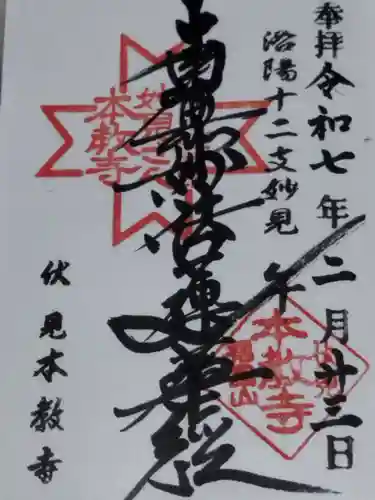 奉拝
令和七年二月廿三日
洛陽十二支妙見
午
南無妙法蓮華経
妙見
本教寺
本教寺
伏見本教寺